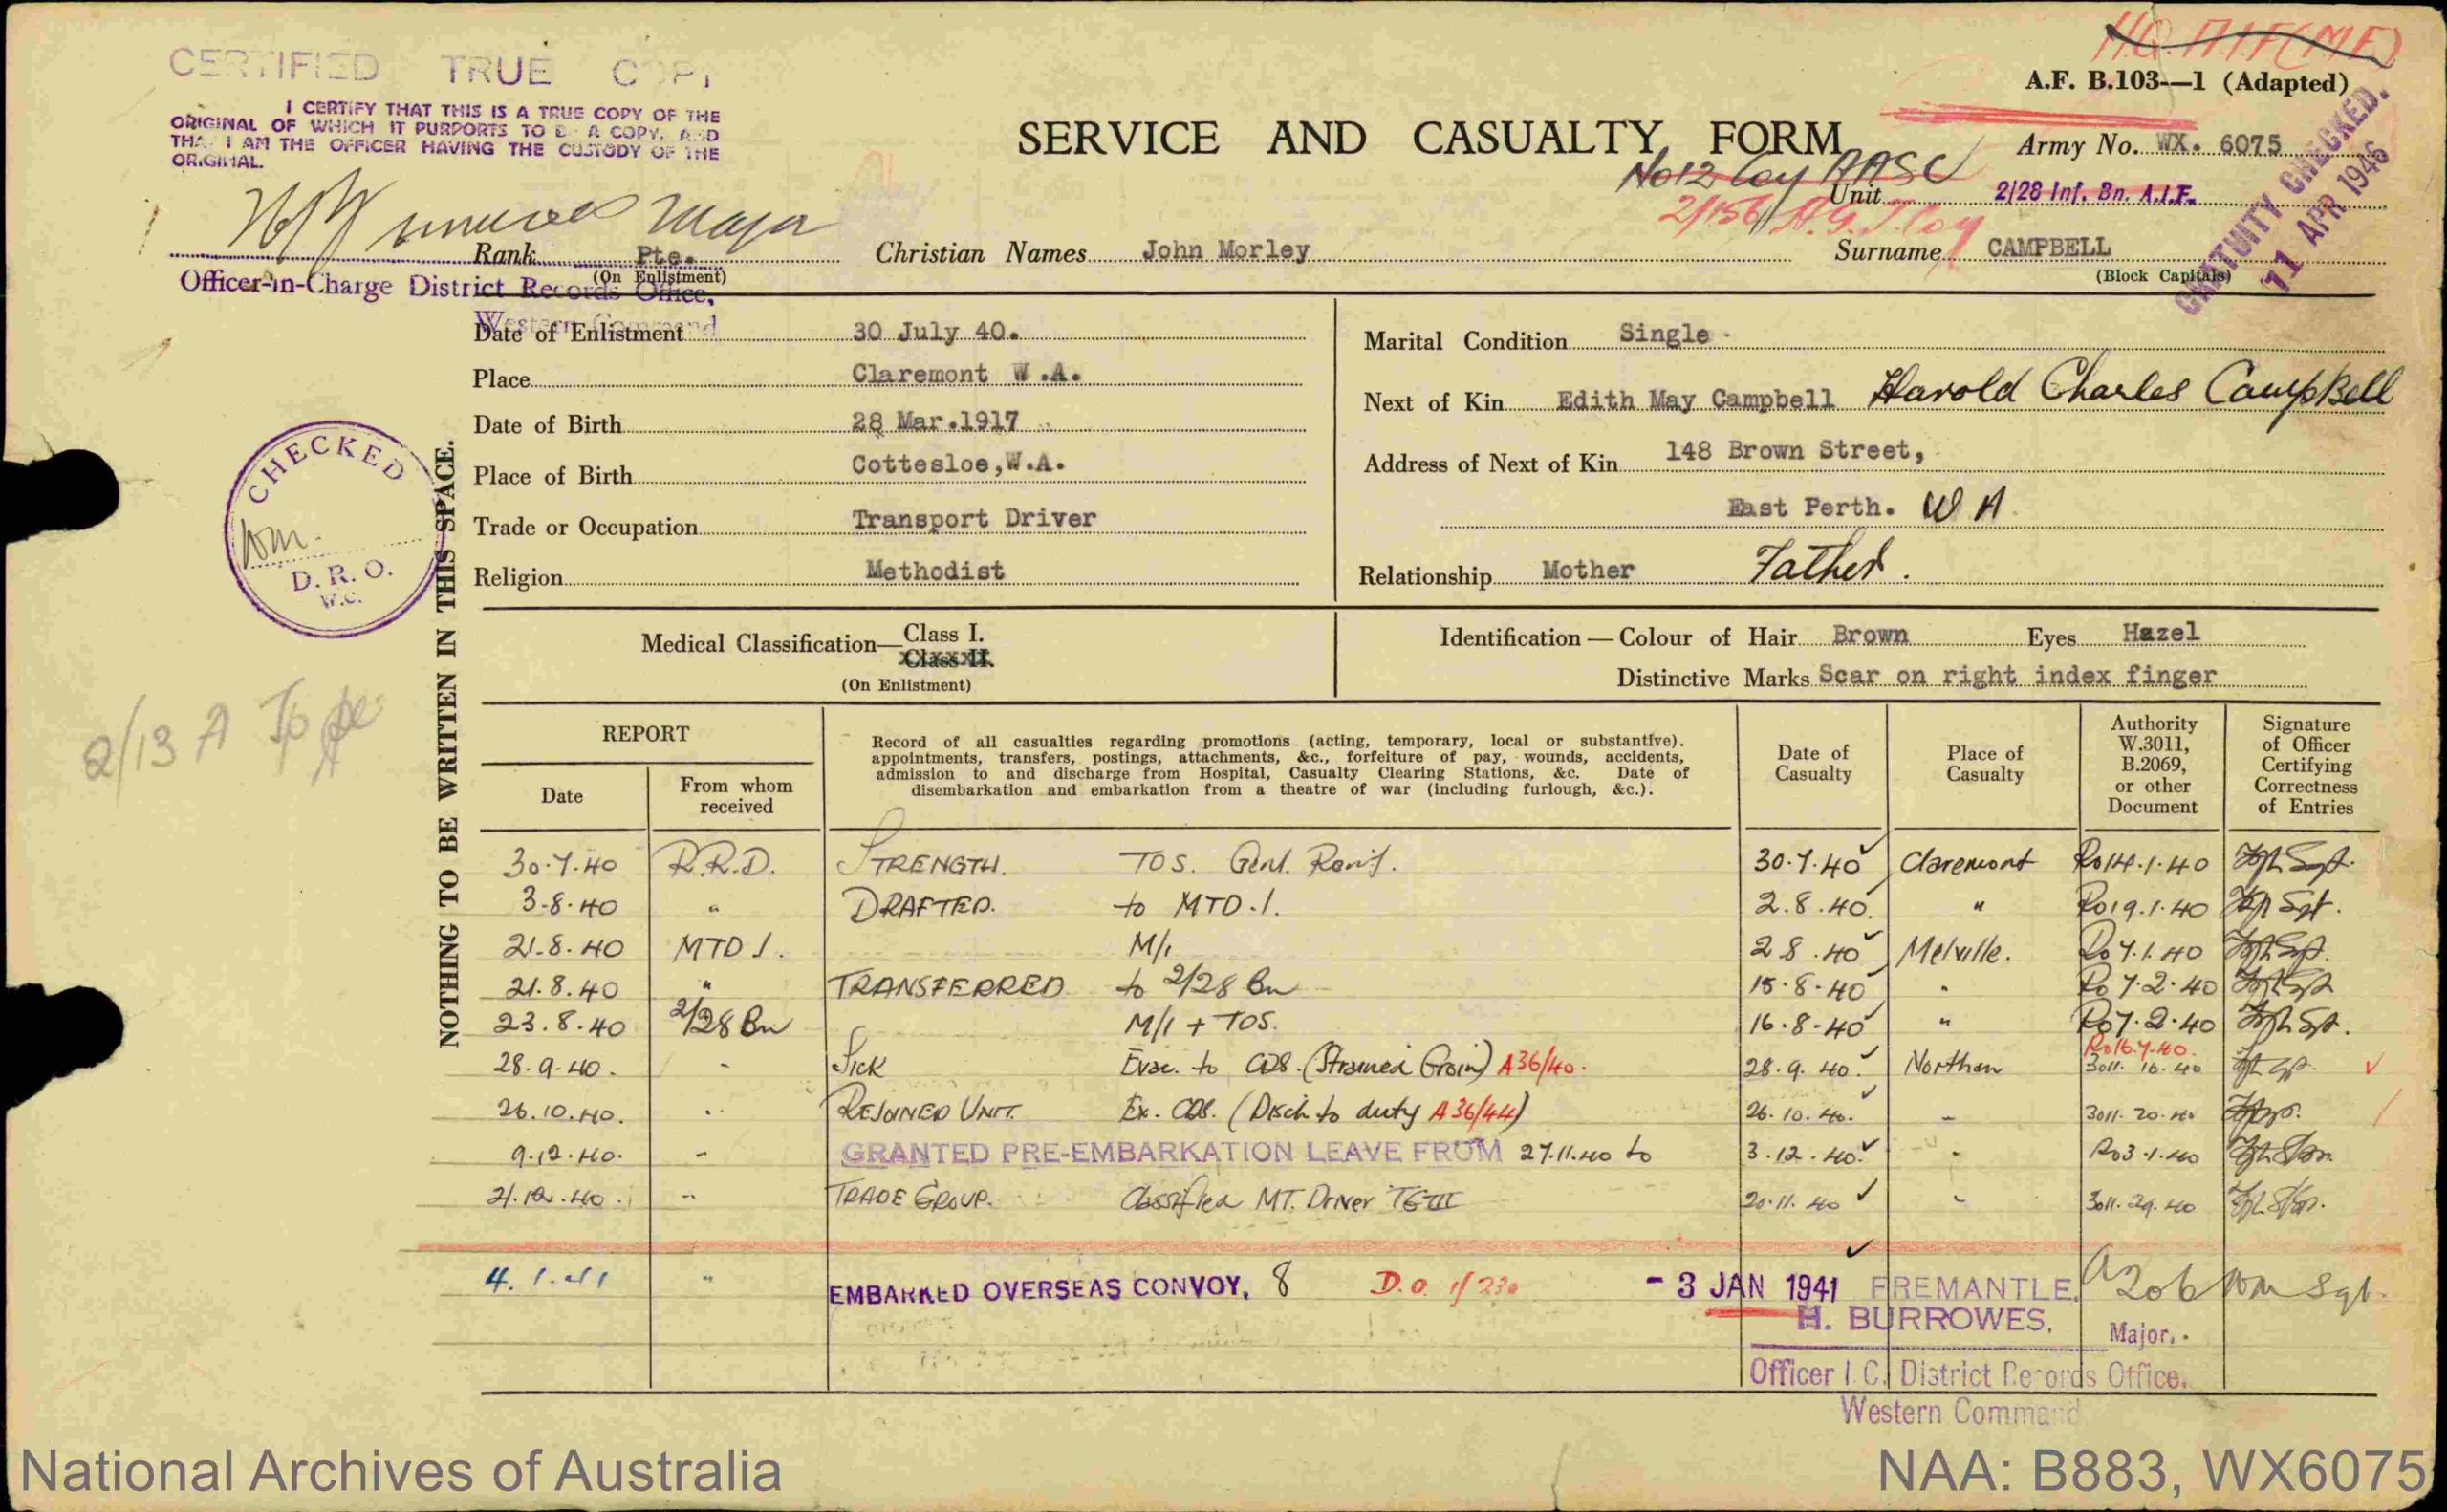 H.Q. A.I.F (M.E)
CERTIFIED TRUE COPY
A.F. B.103—1 (Adapted)
I CERTIFY THAT THIS IS A TRUE COPY OF THE
ORIGINAL OF WHICH IT PURPORTS TO BE A COPY, AND
THAT I AM THE OFFICER HAVING THE CUSTODY OF THE
ORIGINAL.
SERVICE AND CASUALTY FORM
Army No. WX. 6075
No 12 Coy AASC
Unit 2/28 Inf. Bn. A.I.F.
2/156 A.G.T. Coy
GRATUITY CHECKED.
11 APR 1946
Major
Rank Pte. Christian Names John Morley Surname CAMPBELL
(On Enlistment) (Block Capitals)
Officer-in-Charge District Records Office,
Western Command
Date of Enlistment 30 July 40. Marital Condition Single
Place Claremont W.A. Next of Kin Edith May Campbell Harold Charles Campbell
Date of Birth 28 Mar. 1917
Place of Birth Cottesloe, W.A. Address of Next of Kin 148 Brown Street,
Trade or Occupation Transport Driver East Perth. W A
Religion Methodist Relationship Mother Father.
CHECKED
D.R.O.
W.C.
NOTHING TO BE WRITTEN IN THIS SPACE.
Medical Classification— Class I. Identification—Colour of Hair Brown Eyes Hazel
Class II.
(On Enlistment) Distinctive Marks Scar on right index finger
2/13 A
REPORT
Date
From whom received
Record of all casualties regarding promotions (acting, temporary, local or substantive).
appointments, transfers, postings, attachments, &c., forfeiture of pay, wounds, accidents,
admission to and discharge from Hospital, Casualty Clearing Stations, &c. Date of
disembarkation and embarkation from a theatre of war (including furlough, &c.).
Date of Casualty
Place of Casualty
Authority W.3011, B.2069, or other Document
Signature of Officer Certifying Correctness of Entries
30.7.40 R.R.D. STRENGTH. TOS. Genl. Reinf. 30.7.40 Claremont Ro14.1.40 Sgt.
3.8.40 " DRAFTED. to MTD.1. 2.8.40. " Ro19.1.40 Sgt.
21.8.40 MTD 1. M/I 2 8.40 Melville. Ro 7.1.40 Sgt.
21.8.40 " TRANSFERRED to 2/28 Bn 15.8.40 " Ro 7.2.40 Sgt
23.8.40 2/28 Bn M/I + TOS. 16.8.40 " Ro7.2.40 Sgt.
Ro16.7.40.
28.9.40. " SICK Evac. to CDS. (Strained Groin) A36/40. 28.9.40. Northam 3011. 16.40
26.10.40. " REJOINED UNIT. Ex. CDS. (Disch to duty A36/44) 26.10.40. " 3011. 20.40
9.12.40. " GRANTED PRE-EMBARKATION LEAVE FROM 27.11.40 to 3.12.40. " Ro3.1.40
21.12.40. " TRADE GROUP. Classified MT. Driver TG III 20.11.40 " 3011.29.40
4.1.41 " EMBARKED OVERSEAS CONVOY, 8 D.O. 1/230 - 3 JAN 1941 FREMANTLE. A206 Sgt.
H. BURROWES, Major.
Officer I.C. District Records Office.
Western Command
National Archives of Australia
NAA: B883, WX6075